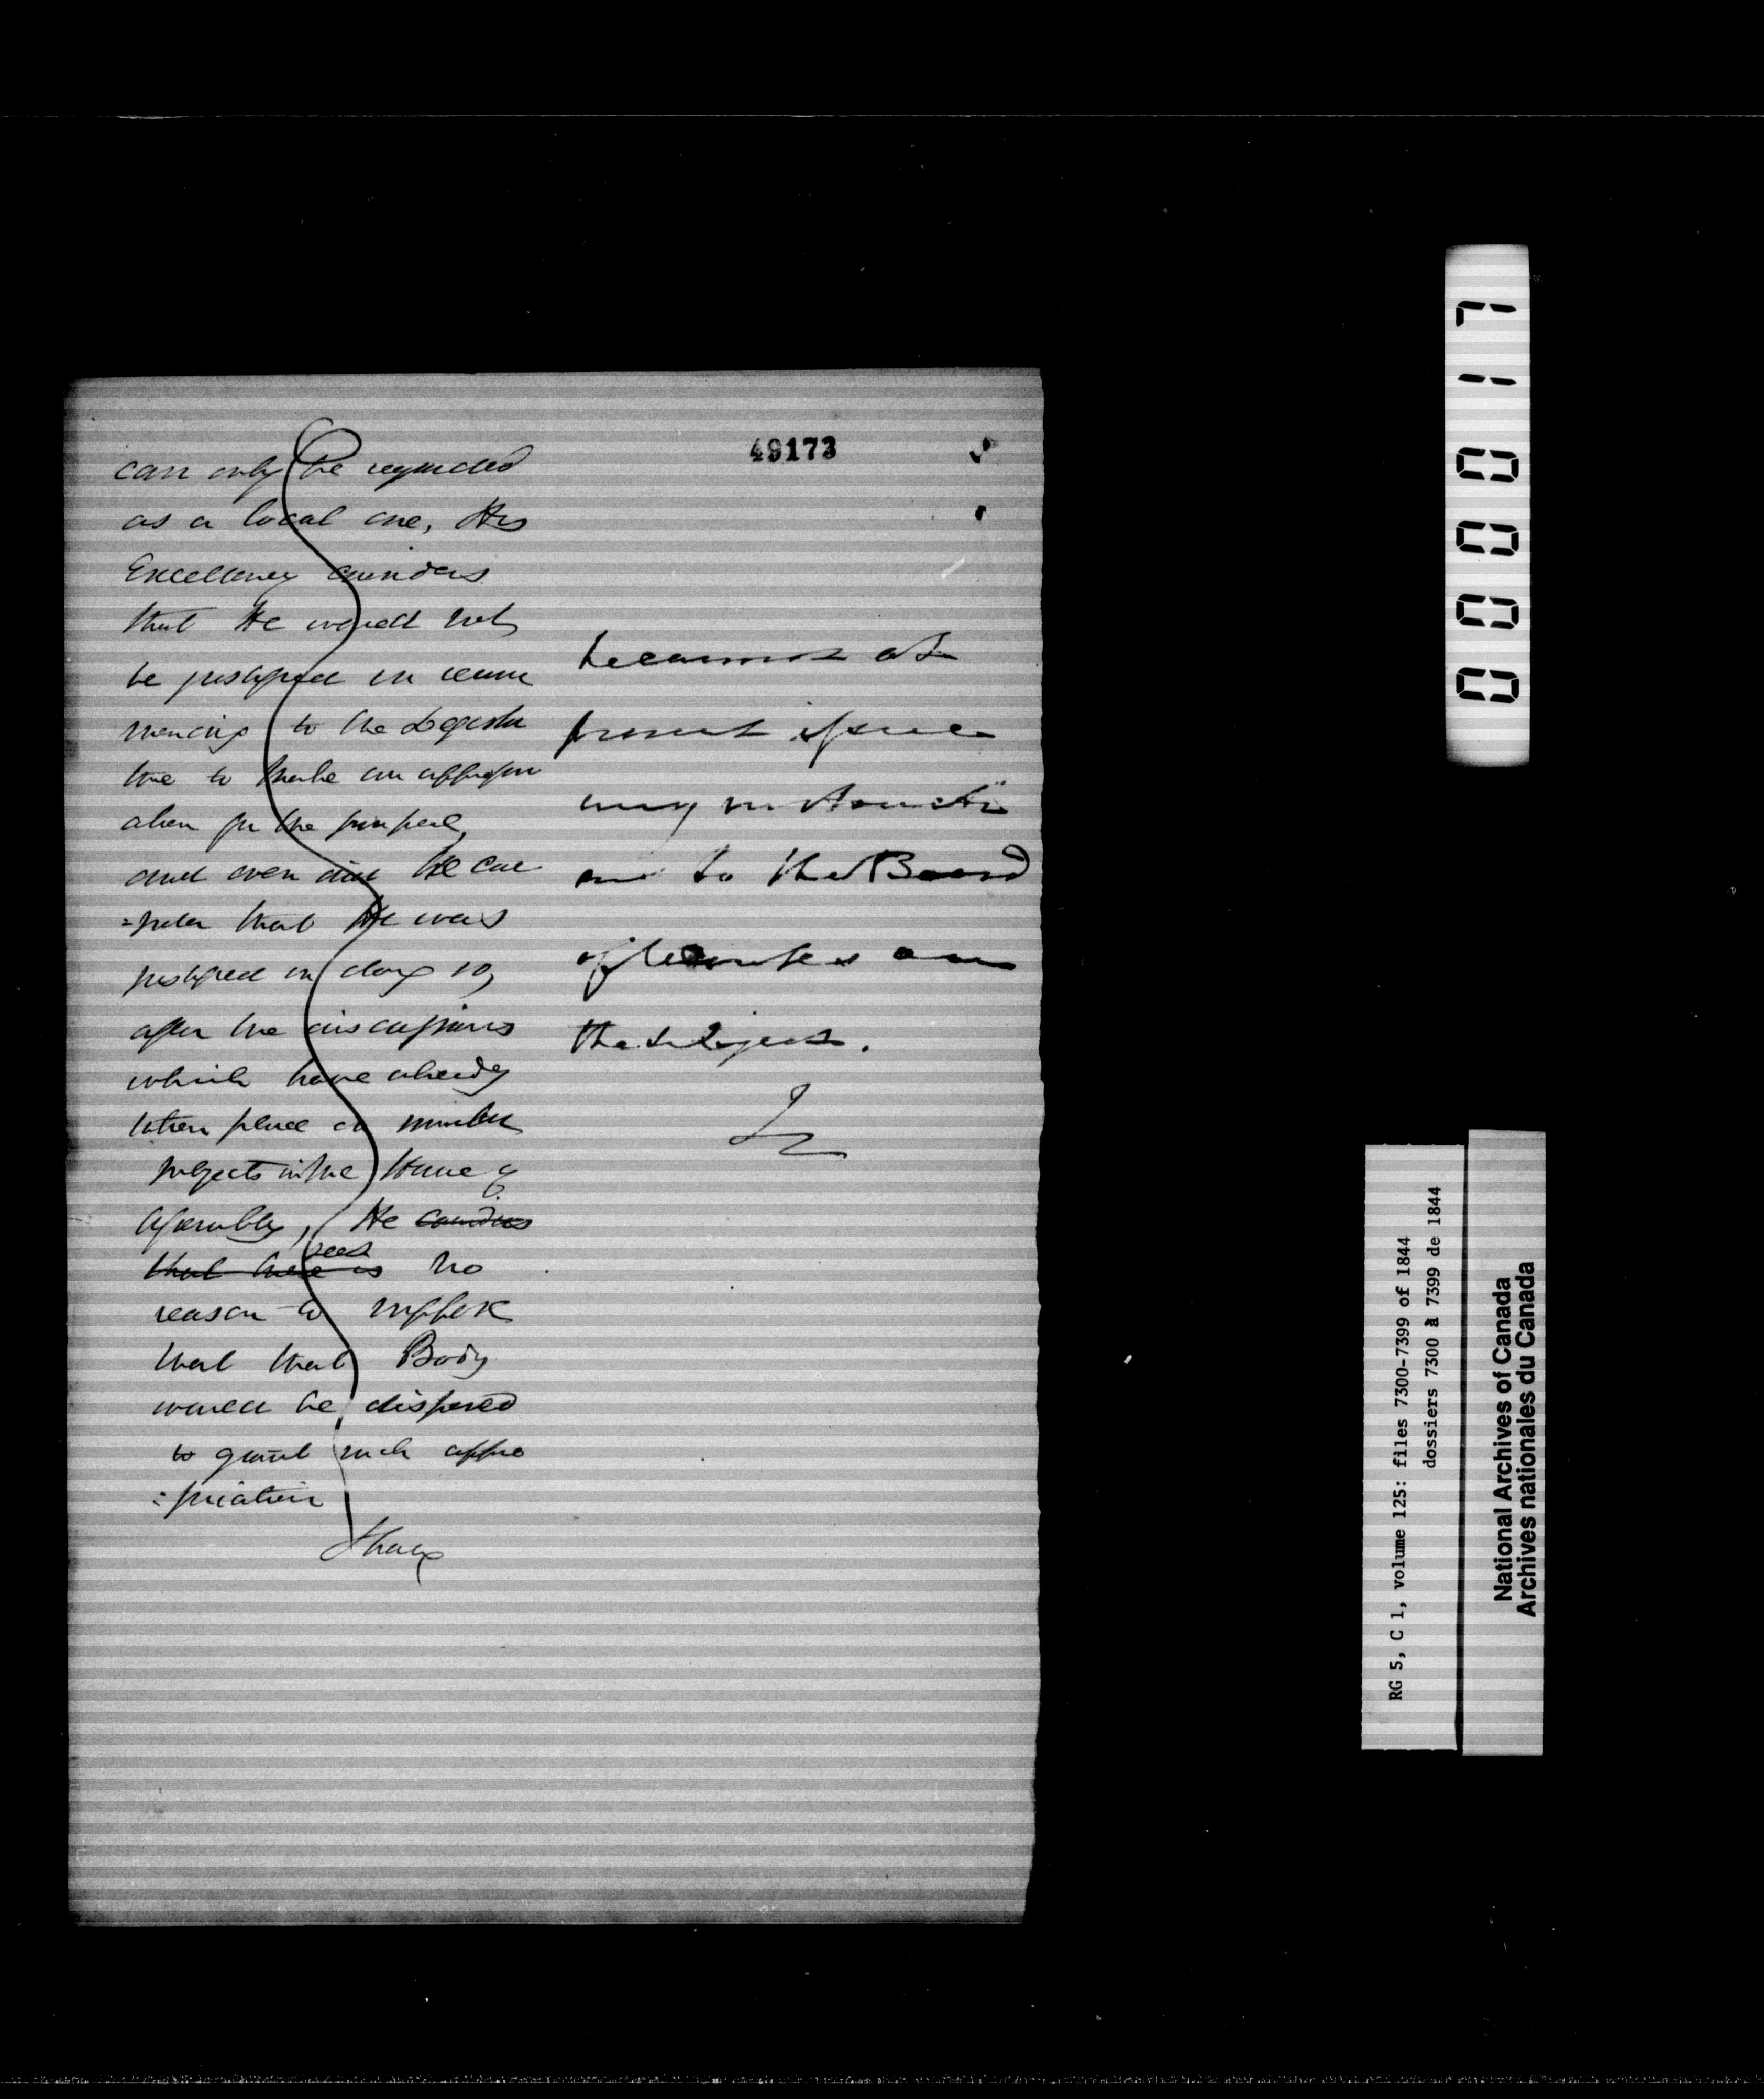 49173
can only be regarded
as a local one, His
Excellency considers
that He would not
be justified in recom
mending to the Legisla
ture to make an appropri
ation for the purpose,
and even did He con
=sider that He was
justified in doing so,
after the discussions
which have already
taken place on similar
subjects in the House of
Assembly, He considers
that there is sees no
reason to suppose
that that Body
would be disposed
to grant such appro
=priation
I have
he cannot at
present issue
any instructi
ons to the Board
of Works on
the subject.
000017
RG 5, C 1, volume 125: files 7300-7399 of 1844
dossiers 7300 à 7399 de 1844
National Archives of Canada
Archives nationales du Canada